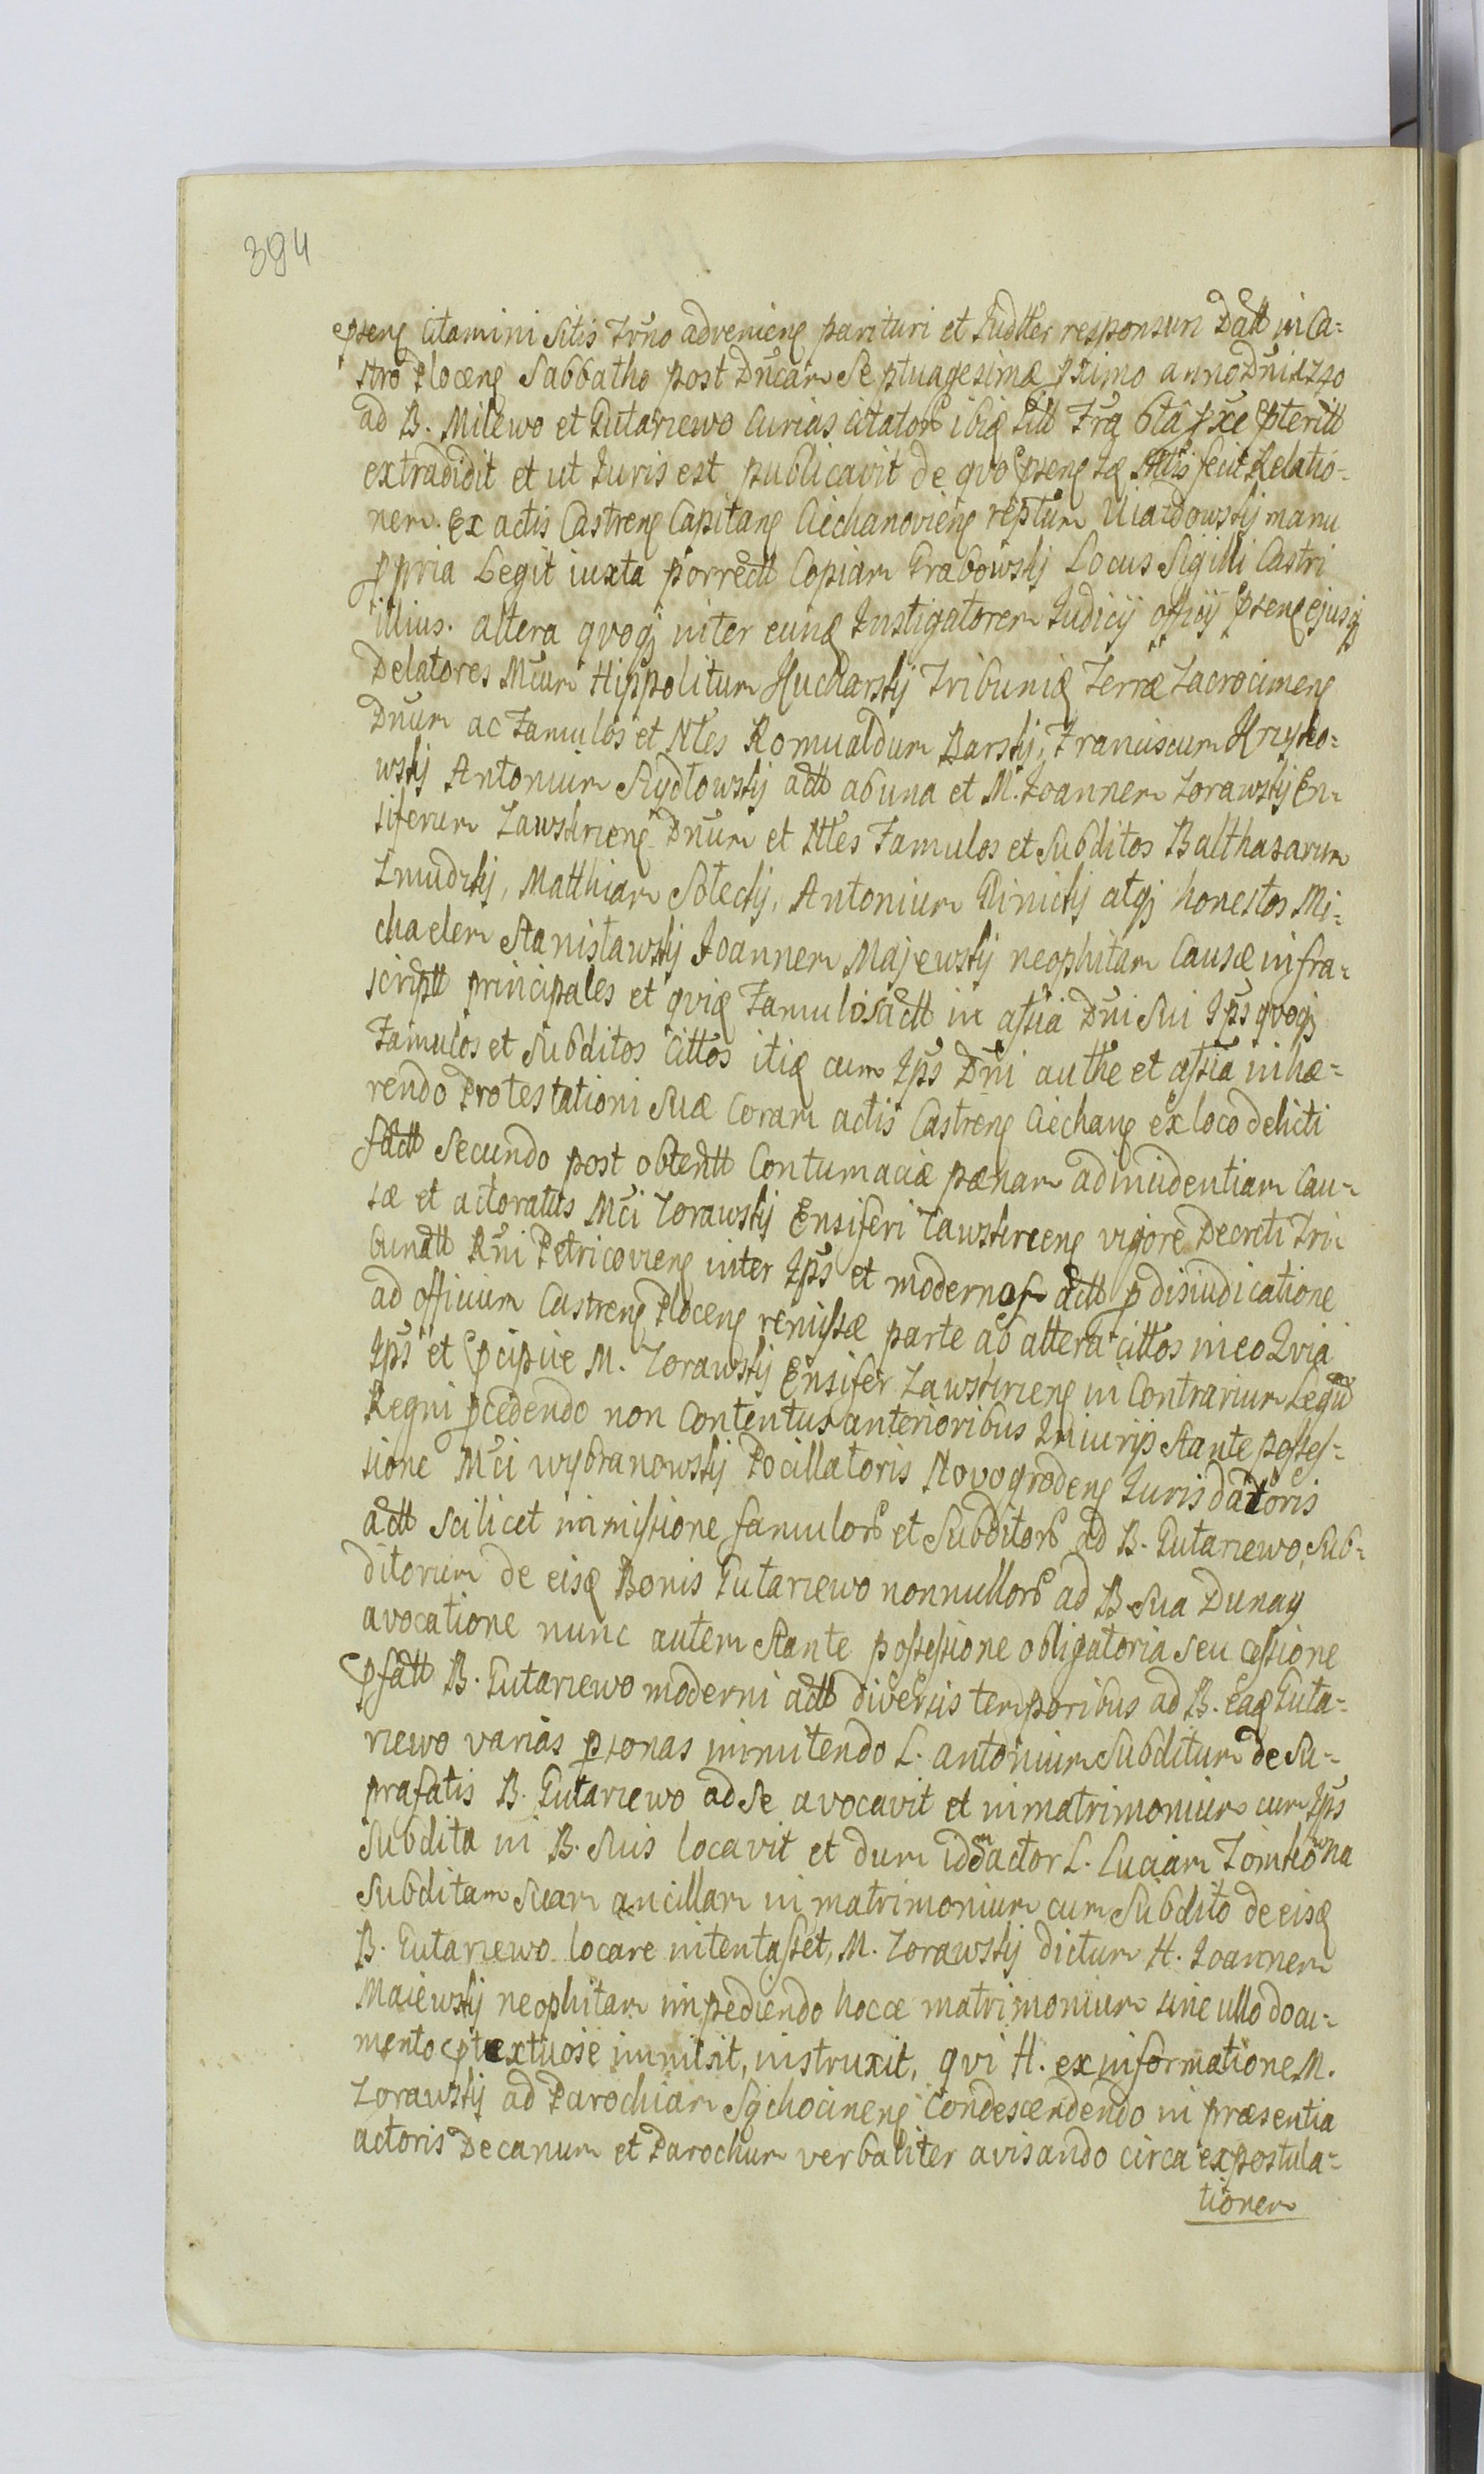 394
pseng citamini sitis Trno advenieng parituri et Judtler responsuri Datt in Ca=
stro Ploceng Sabbatho post Dncam Septuagesimæ primo anno Dni 1740
ad B. Milewo et Gutarzewo Curias citator ibiq Litt
extradidit et ut Juris est publicavit de qvo pseng fecit Relatio=
nem. Ex actis Castreng Capitang Ciechanovieng reptum Uiazdowskij manu
ppria Legit iuxta porrectt Copiam Grabowskj Locus Sigilli Castri
illius. altera qvoqj inter eund Instigatorem Judicij officij pseng ejusqj
Delatores Mcum Hippolitum Kucharskj Tribunid Terræ Zacrocimeng
Dnum ac Famulos et Ntes Romualdum Barskj, Franciscum Krzyko=
wskj Antonium Szydłowskj actt ab una et M. Joannem Zorawskj En=
siferum Zawskrzeng Dnum et Ntes Famulos et Subditos Balthasarum
Zmudzkj, Matthiam Soteckj, Antonium Glinickj atqj honestos Mi=
chaelem Stanisławskj Joannem Majewskj neophitam Causæ infra=
scriptt principales et qvid Famulos actt in assia Dni Sui Ips qvoqj
Famulos et Subditos Cittos itid cum Ips Dni authe et assia inhæ=
rendo Protestationi suæ Coram actis Castreng Ciechang ex loco delicti
factt Secundo post obtentt Contumaciæ pænam ad incidentiam Cau=
sæ et actoratus Mci Zorawskj Ensiferi Zawskrzeng vigore Decreti Tri=
bunatt Rni Petricovieng inter Ips et modernos actt p disiudicatione
ad officium Castreng Ploceng remissæ parte ab altera cittos in eo Qvia
Ips et pcipue M. Zorawskj Ensifer Zawskrzeng in Contrarium Legum
Regni pcedendo non Contentus anterioribus Iniurijs Stante posses=
sione Mci wybranowskj Pocillatoris Novogrodeng Juris datoris
actt scilicet immissione famulor et Subditor ad B. Gutarzewo, sub=
ditorum de eisd Bonis Gutarzewo nonnullor ad B. sua Dunay
avocatione nunc autem Stante possessione obligatoria seu cessione
pfatt B. Gutarzewo moderni actt diversis temporibus ad B. ead Guta=
rzewo varias psonas immitendo L. antonium Subditum de Su=
prafatis B. Gutarzewo ad Se avocavit et in matrimonium cum Ips
Subdita in B. suis locavit et dum iddm actor L. Luciam Tomkowna
Subditam suam ancillam in matrimonium cum Subdito de eisd
B. Gutarzewo locare intentasset, M. Zorawskj dictum H. Joannem
Maiewskj neophitam impediendo hocce matrimonium sine ullo docu=
mento ptextuose immisit, instruxit, qvi H. ex informatione M.
Zorawskj ad Parochiam Sąchocineng Condescendendo in præsentia
actoris Decanum et Parochum verbaliter avisando circa expostula=
tionem